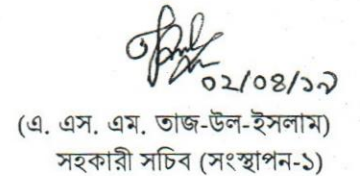 ০২/০৪/১৯
(এ. এস. এম. তাজ-উল-ইসলাম)
সহকারী সচিব (সংস্থাপন-১)